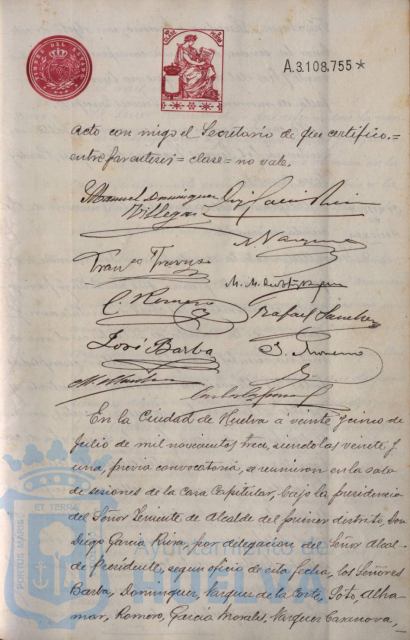 TIMBRE DEL ESTADO
A.3.108.755*
acto con migo el Secretario de que certifico.=
entre parentesis = clase = no vale.
Manuel Dominguez
Villegas
A. Vazquez
Rafael Sanchez
C. Romero
José Barba
J. Moreno
En la Ciudad de Huelva á veinte y cinco de
Julio de mil novecientos trece, siendo las veinte y
una, previa convocatoria, se reunieron en la sala
de sesiones de la Casa Capitular, bajo la presidencia
del Señor Teniente de Alcalde del primer distrito, Don
Diego Garcia Riera, por delegacion del Señor Alcal-
de Presidente, segun oficio de esta fecha, los Señores
Barba, Dominguez, Vazquez de la Corte, Soto, Alha-
mar, Romero, Garcia Morales, Vazquez Casanova,
PORTUS MARIS ET TERRÆ
Ayuntamiento de
HUELVA